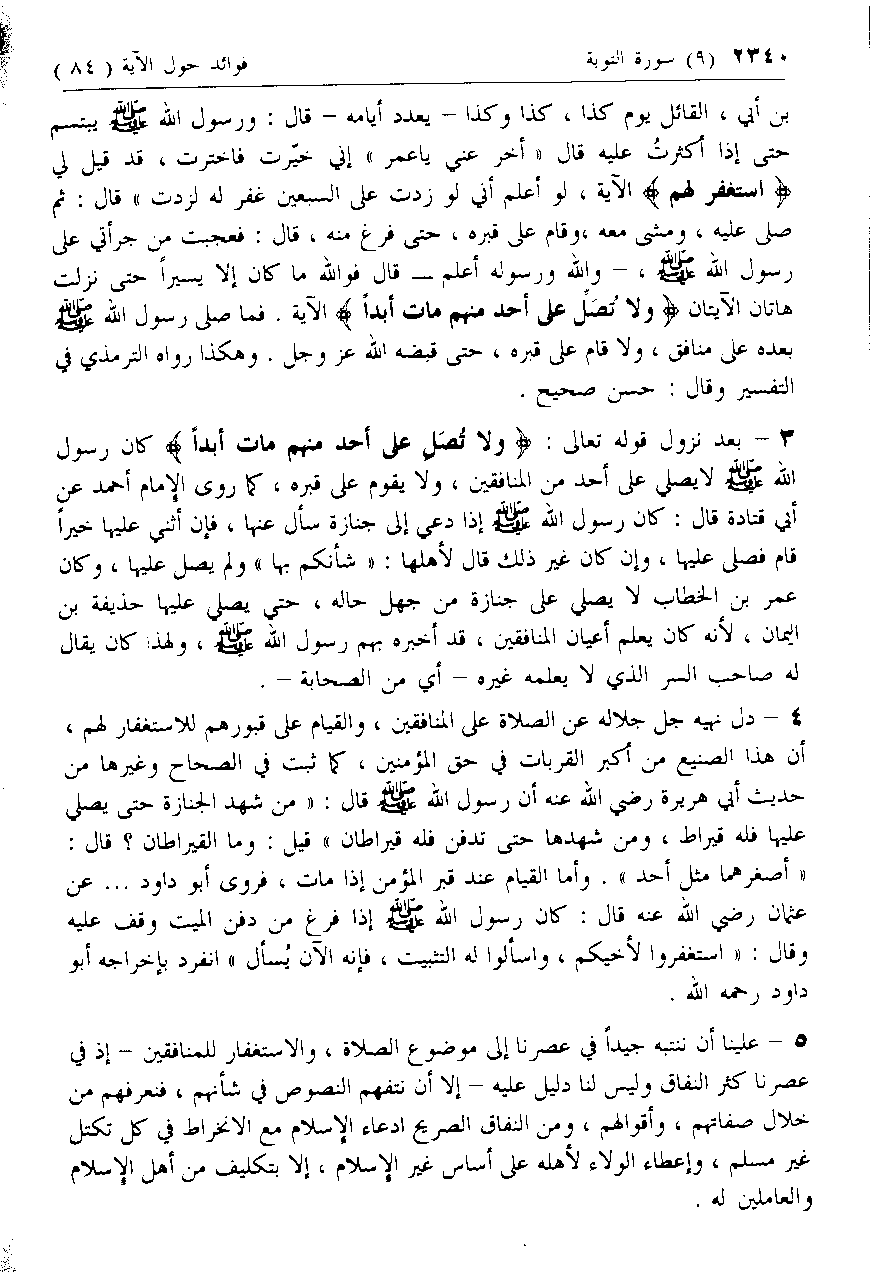 ٢٣٤٠ (٩) سورة التوبة فوائد حول الآية ( ٨٤ )
بن أبي ، القائل يوم كذا ، كذا وكذا – يعدد أيامه – قال : ورسول الله ﷺ يبتسم
حتى إذا أكثرتُ عليه قال « أخر عني ياعمر » إني خيّرت فاخترت ، قد قيل لي
﴿ استغفر لهم ﴾ الآية ، لو أعلم أني لو زدت على السبعين غفر له لزدت » قال : ثم
صلى عليه ، ومشى معه ،وقام على قبره ، حتى فرغ منه ، قال : فعجبت من جرأتي على
رسول الله ﷺ ، – والله ورسوله أعلم – قال فوالله ما كان إلا يسيراً حتى نزلت
هاتان الآيتان ﴿ ولا تُصَلّ على أحد منهم مات أبداً ﴾ الآية . فما صلى رسول الله ﷺ
بعده على منافق ، ولا قام على قبره ، حتى قبضه الله عز وجل . وهكذا رواه الترمذي في
التفسير وقال : حسن صحيح .
٣ – بعد نزول قوله تعالى : ﴿ ولا تُصَلِ على أحد منهم مات أبداً ﴾ كان رسول
الله ﷺ لايصلي على أحد من المنافقين ، ولا يقوم على قبره ، كما روى الإمام أحمد عن
أبي قتادة قال : كان رسول الله ﷺ إذا دعي إلى جنازة سأل عنها ، فإن أثني عليها خيراً
قام فصلى عليها ، وإن كان غير ذلك قال لأهلها : « شأنكم بها » ولم يصل عليها ، وكان
عمر بن الخطاب لا يصلي على جنازة من جهل حاله ، حتي يصلي عليها حذيفة بن
اليمان ، لأنه كان يعلم أعيان المنافقين ، قد أخبره بهم رسول الله ﷺ ، ولهذا كان يقال
له صاحب السر الذي لا يعلمه غيره – أي من الصحابة – .
٤ – دل نهيه جل جلاله عن الصلاة على المنافقين ، والقيام على قبورهم للاستغفار لهم ،
أن هذا الصنيع من أكبر القربات في حق المؤمنين ، كما ثبت في الصحاح وغيرها من
حديث أبي هريرة رضي الله عنه أن رسول الله ﷺ قال : « من شهد الجنازة حتى يصلي
عليها فله قيراط ، ومن شهدها حتى تدفن فله قيراطان » قيل : وما القيراطان ؟ قال :
« أصغرهما مثل أحد » . وأما القيام عند قبر المؤمن إذا مات ، فروى أبو داود ... عن
عثمان رضي الله عنه قال : كان رسول الله ﷺ إذا فرغ من دفن الميت وقف عليه
وقال : « استغفروا لأخيكم ، واسألوا له التثبيت ، فإنه الآن يُسأل » انفرد بإخراجه أبو
داود رحمه الله .
٥ – علينا أن ننتبه جيداً في عصرنا إلى موضوع الصلاة ، والاستغفار للمنافقين – إذ في
عصرنا كثر النفاق وليس لنا دليل عليه – إلا أن نتفهم النصوص في شأنهم ، فنعرفهم من
خلال صفاتهم ، وأقوالهم ، ومن النفاق الصريح ادعاء الإسلام مع الانخراط في كل تكتل
غير مسلم ، وإعطاء الولاء لأهله على أساس غير الإسلام ، إلا بتكليف من أهل الإسلام
والعاملين له .